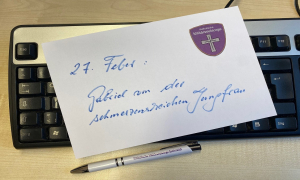 27. Feber:
Gabriel von der
schmerzensreichen Jungfrau